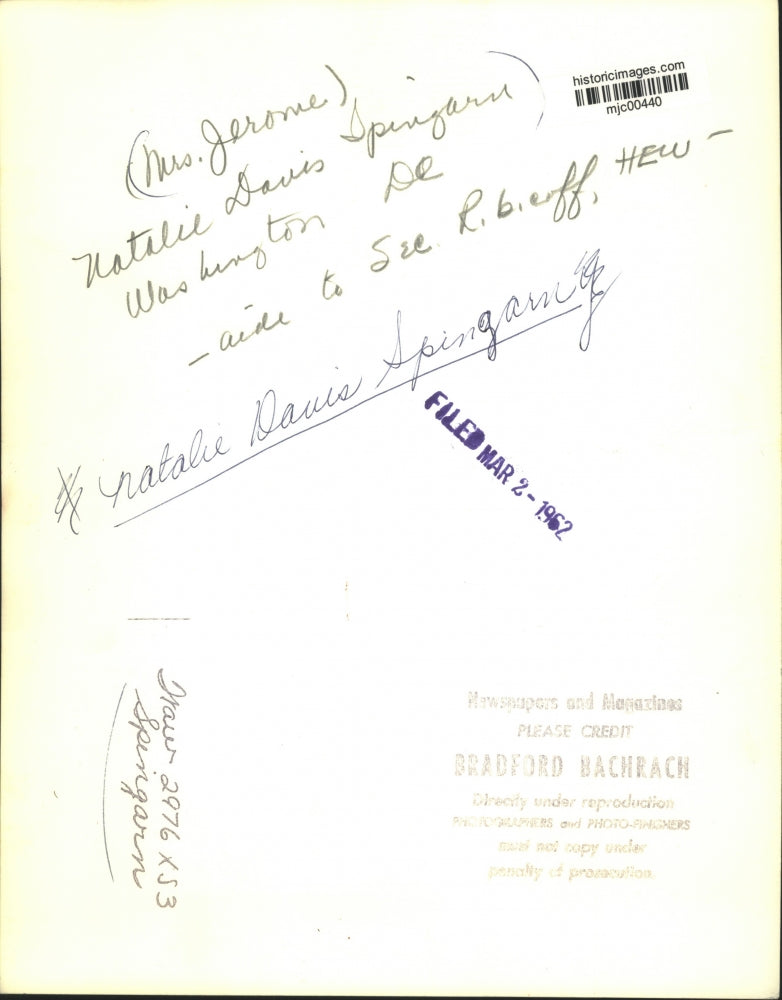 historicimages.com
mjc00440
(Mrs. Jerome)
Natalie Davis Spingarn)
Washington DC
- aide to Sec. Ribicoff, HEW -
Natalie Davis Spingarn
FILED MAR 2 - 1962
2976 X S3
Spingarn
Newspapers and Magazines
PLEASE CREDIT
BRADFORD BACHRACH
Directly under reproduction
PHOTOGRAPHERS and PHOTO-FINISHERS
must not copy under
penalty of prosecution.